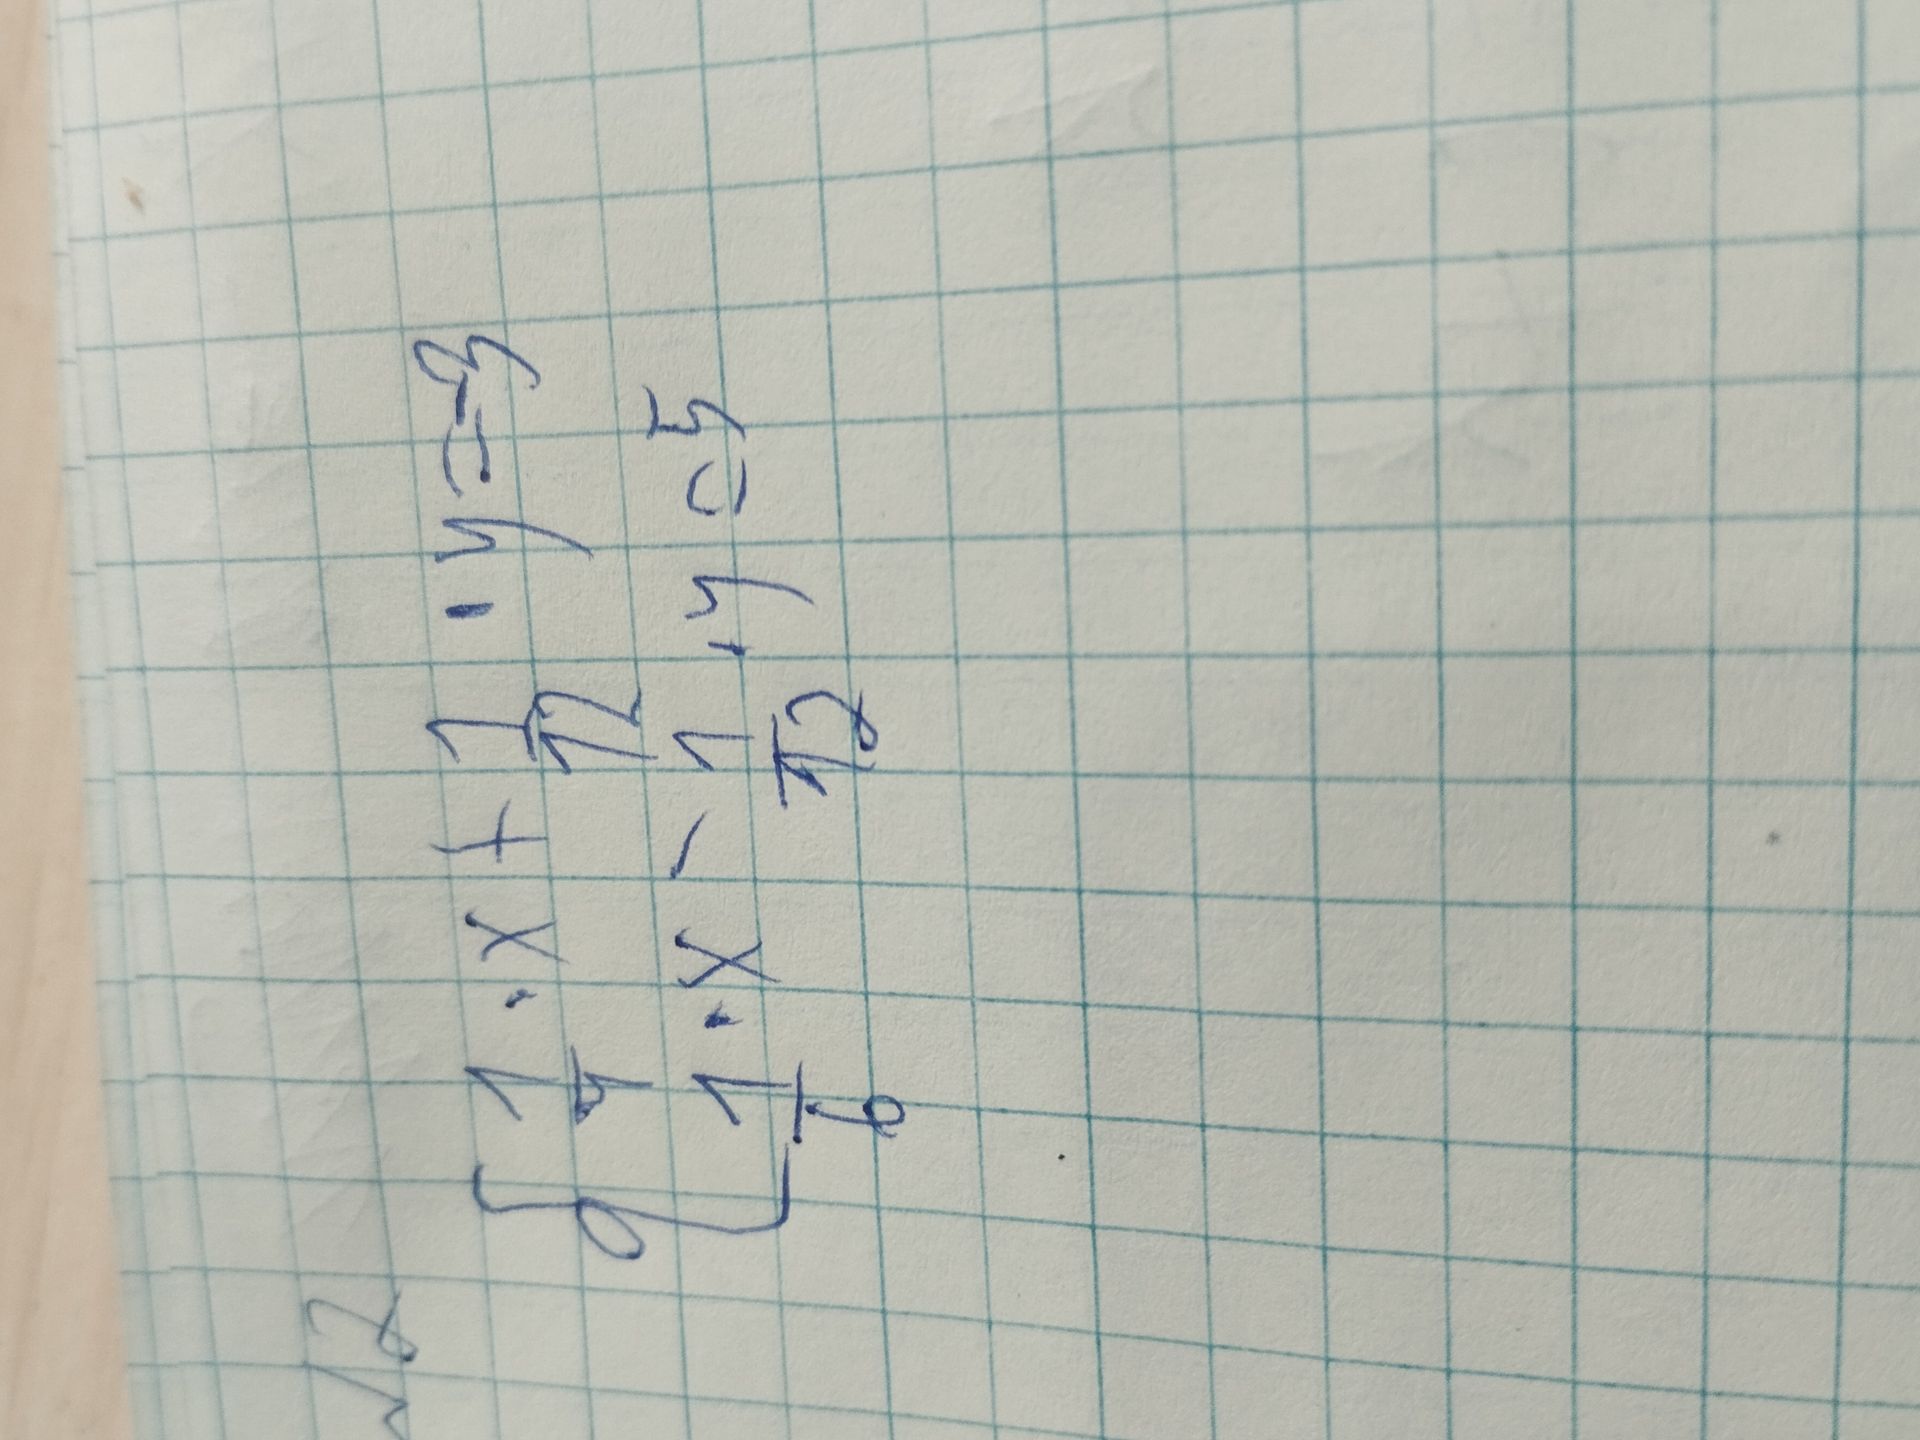 √2
{ 1/4 · x + 1/12 · y = 3
1/6 · x - 1/12 · y = 5